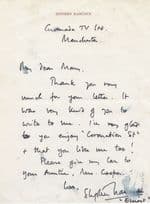 STEPHEN HANCOCK
Granada TV Ltd.
Manchester
My dear Mary,
Thank you very
much for your letter. It
was very kind of you to
write to me. I'm very glad
to you enjoy 'Coronation St'
+ that you like me too!
Please give my love to
your Auntie, Mrs. Cooper.
Love,
Stephen Hancock
"Ernest"